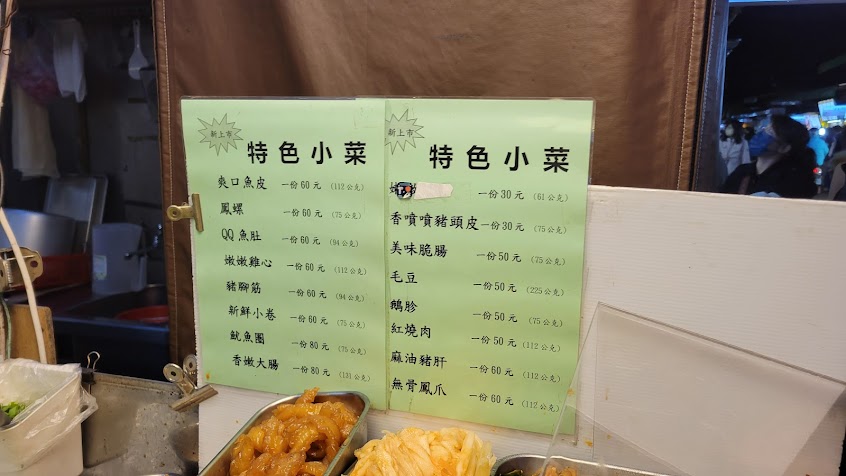 新上市
特色小菜
爽口魚皮 一份60元 (112公克)
鳳螺 一份60元 (75公克)
QQ魚肚 一份60元 (94公克)
嫩嫩雞心 一份60元 (112公克)
豬腳筋 一份60元 (94公克)
新鮮小卷 一份60元 (75公克)
魷魚圈 一份80元 (75公克)
香嫩大腸 一份80元 (131公克)
新上市
特色小菜
一份30元 (61公克)
香噴噴豬頭皮 一份30元 (75公克)
美味脆腸 一份50元 (75公克)
毛豆 一份50元 (225公克)
鵝胗 一份50元 (75公克)
紅燒肉 一份50元 (112公克)
麻油豬肝 一份60元 (112公克)
無骨鳳爪 一份60元 (112公克)